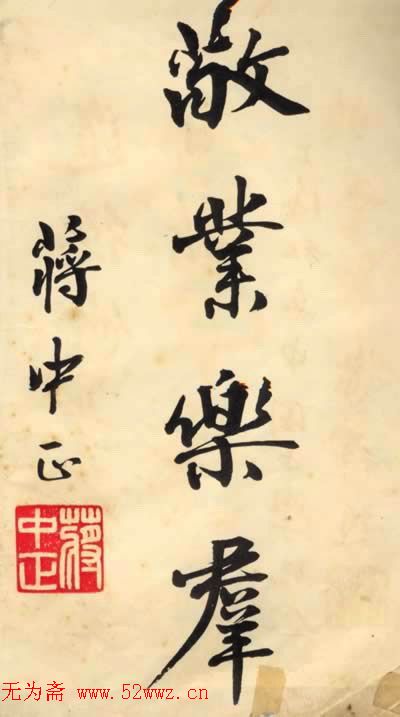 敬業樂羣
蔣中正
蔣中正
无为斋 www.52wwz.cn